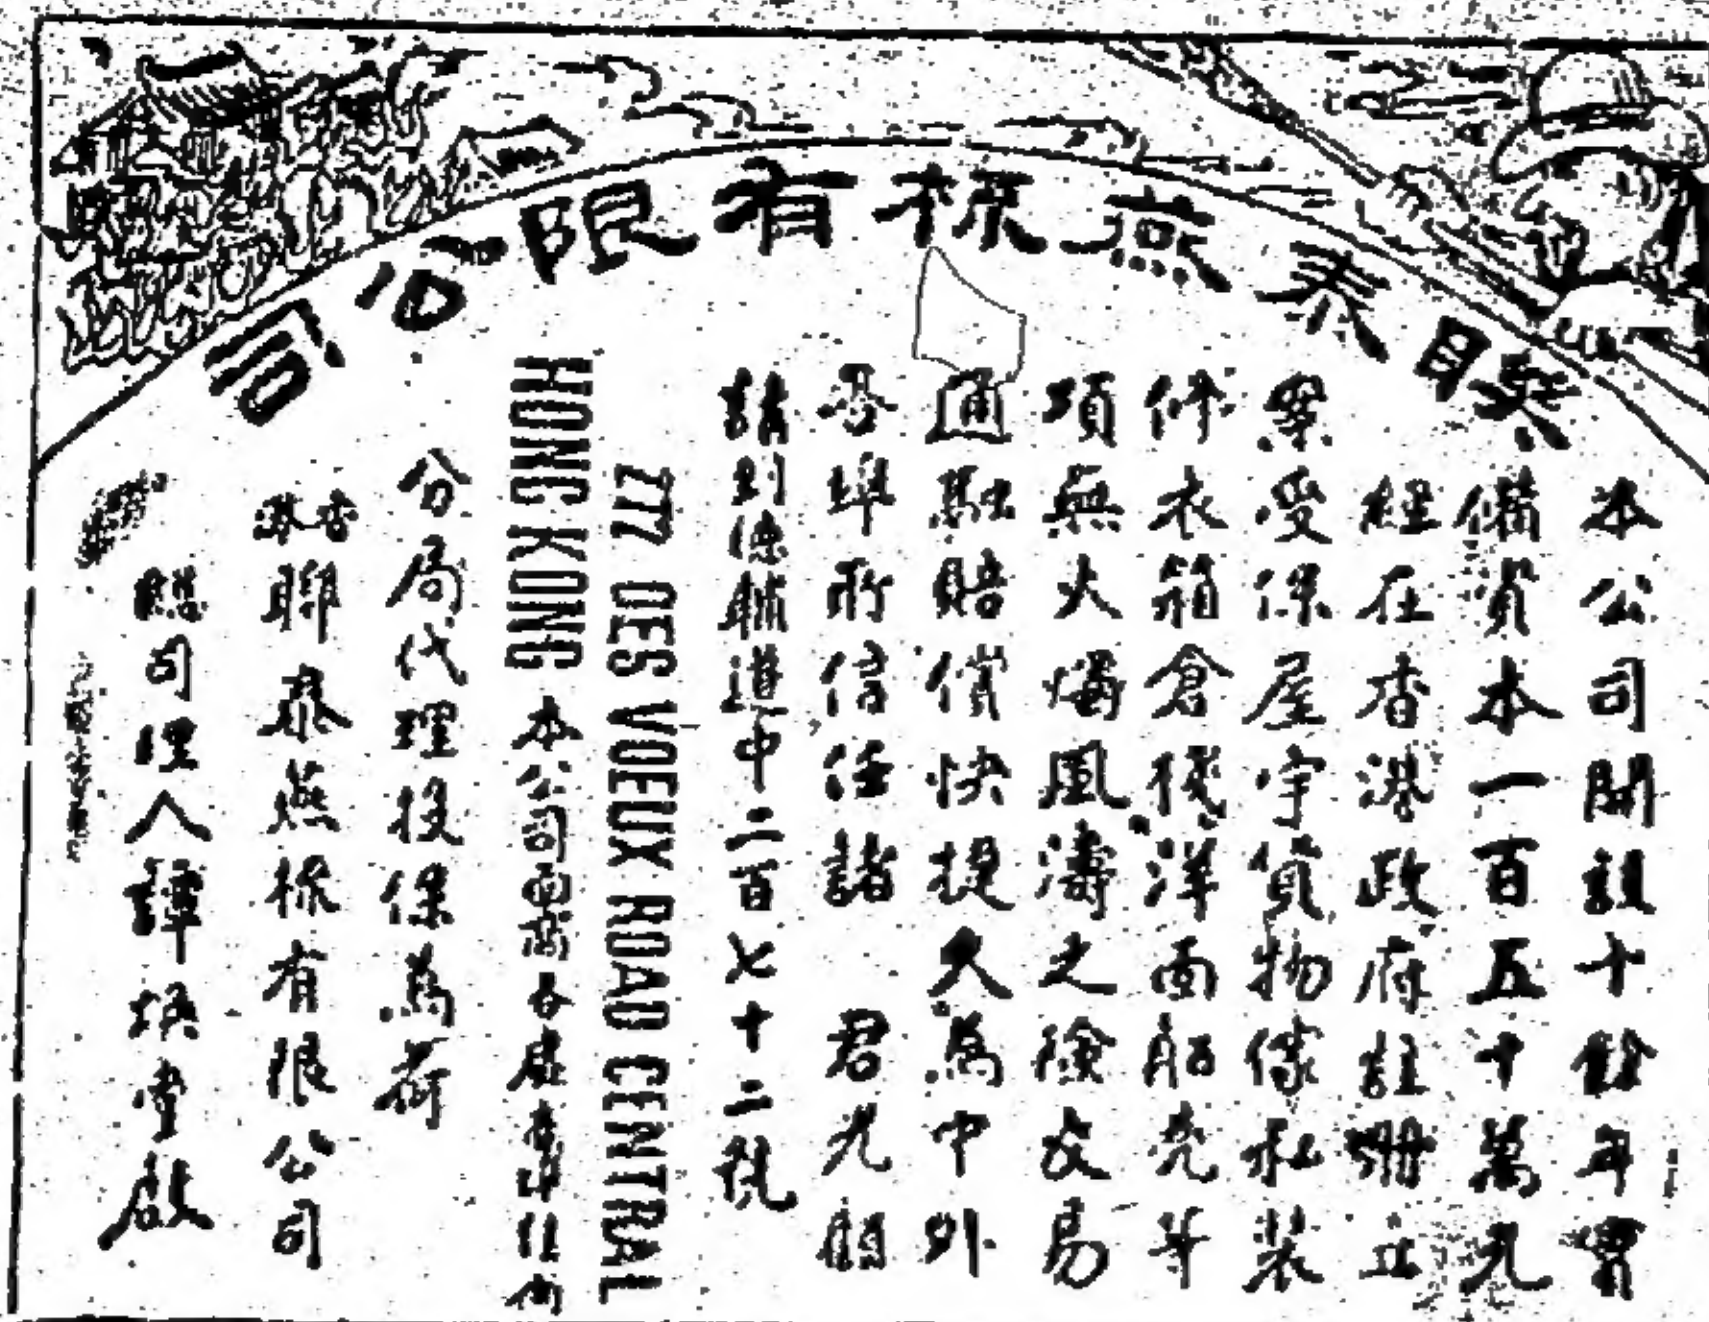 聯泰燕梳有限公司
本公司開設十餘年實
備資本一百五十萬元
經在香港政府註冊立
案受保屋宇貨物傢私裝
修衣箱倉棧洋面船壳等
項無火燭風濤之險交易
通融賠償快捷久為中外
各埠所信任諸 君光顧
請到德輔道中二百七十二號
272 DES VOEUX ROAD CENTRAL
HONG KONG
本公司西商各處
分局代理投保為荷
香港聯泰燕梳有限公司
總司理人譚煥堂啟